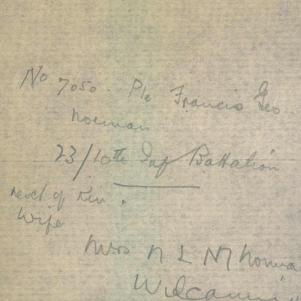 No 7050. Pte Francis Geo
Norman
23/10th Inf Battalion
next of Kin.
Wife
Mrs N L M Norma
Wilcann